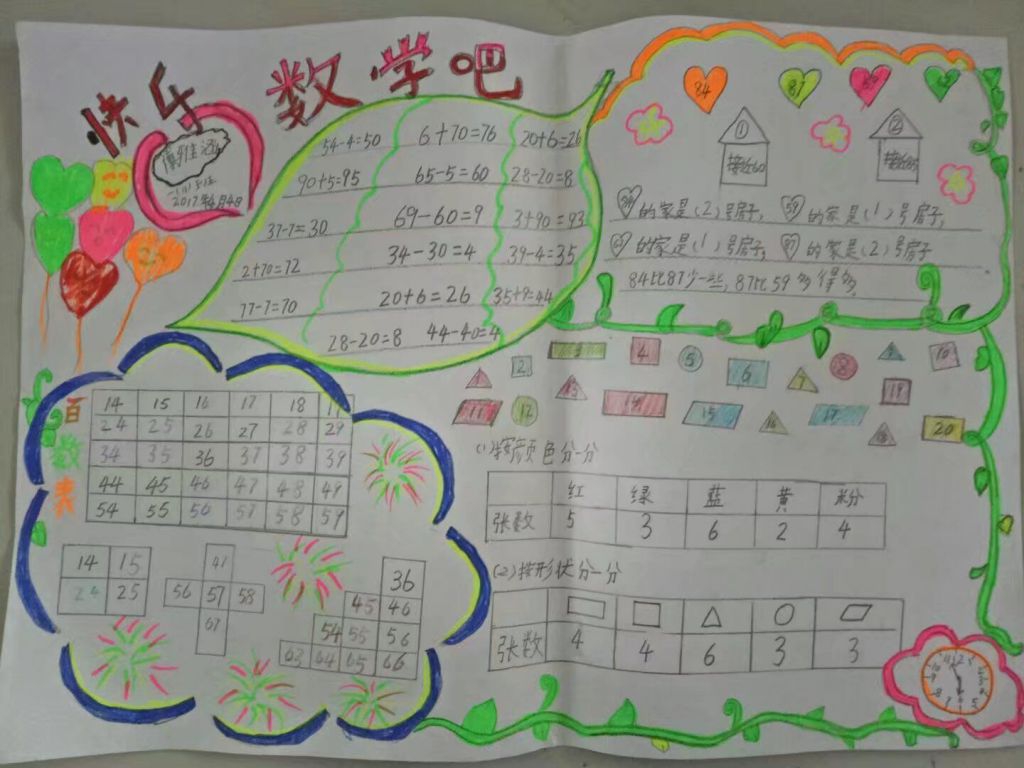 快乐 数学吧
2017年4月4日
54-4=50 6+70=76 20+6=26
90+5=95 65-5=60 28-20=8
37-7=30 69-60=9 3+90=93
2+70=72 34-30=4 39-4=35
77-7=70 20+6=26 35+9=44
28-20=8 44-40=4
84 87
① ②
接近60 接近85
的家是(2)号房子, 59的家是(1)号房子,
的家是(1)号房子, 87的家是(2)号房子
84比87少一些, 87比59多得多。
百数表
14 15 16 17 18
24 25 26 27 28 29
34 35 36 37 38 39
44 45 46 47 48 49
54 55 56 57 58 59
14 15
24 25
47
56 57 58
67
36
45 46
54 55 56
63 64 65 66
2 3 4 5 6 7 8 9 10
11 12 13 14 15 16 17 18 19 20
(1)按颜色分一分
红 绿 蓝 黄 粉
张数 5 3 6 2 4
(2)按形状分一分
张数 4 4 6 3 3